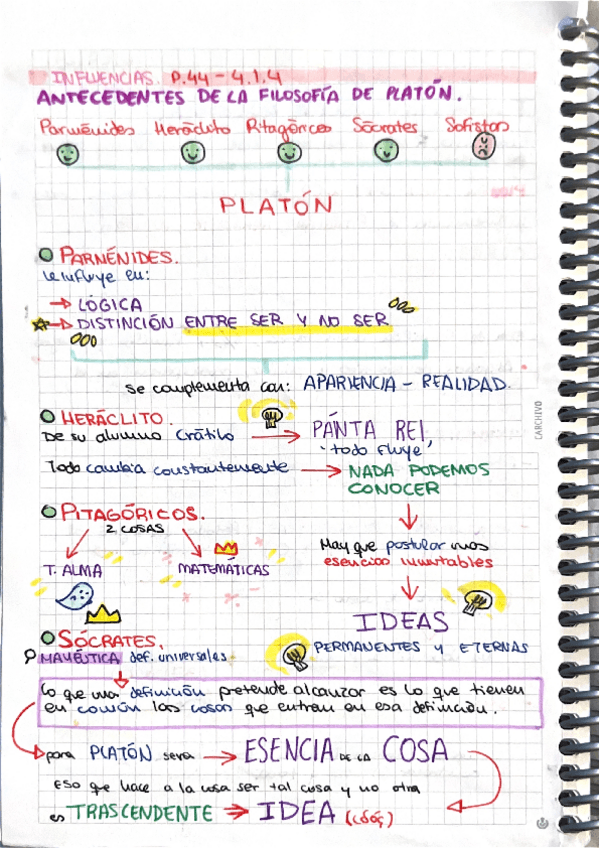 INFLUENCIAS. P.44 - 4.1.4
ANTECEDENTES DE LA FILOSOFÍA DE PLATÓN.
Parménides Heráclito Pitagóricos Sócrates Sofistas
PLATÓN
PARMÉNIDES.
Le influye en:
→ LÓGICA
→ DISTINCIÓN ENTRE SER Y NO SER
se complementa con: APARIENCIA - REALIDAD.
HERÁCLITO.
De su alumno Crátilo → PÁNTA REI,
"todo fluye",
Todo cambia constantemente → NADA PODEMOS
CONOCER
PITAGÓRICOS.
2 COSAS
Hay que postular unas
esencias inmutables
T. ALMA MATEMÁTICAS
IDEAS
PERMANENTES y ETERNAS
SÓCRATES,
MAYÉUTICA def. universales
Lo que una definición pretende alcanzar es lo que tienen
en común las cosas que entran en esa definición.
para PLATÓN sera → ESENCIA DE LA COSA
Eso que hace a la cosa ser tal cosa y no otra
es TRASCENDENTE → IDEA
CARCHIVO